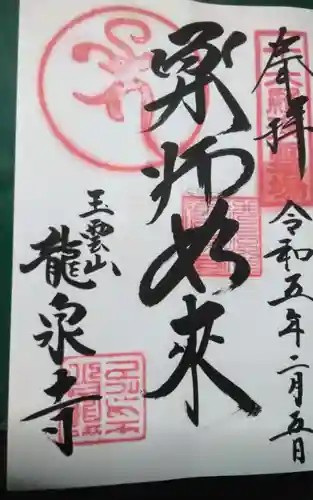 奉拝
令和五年二月五日
薬師如来
玉雲山
龍泉寺